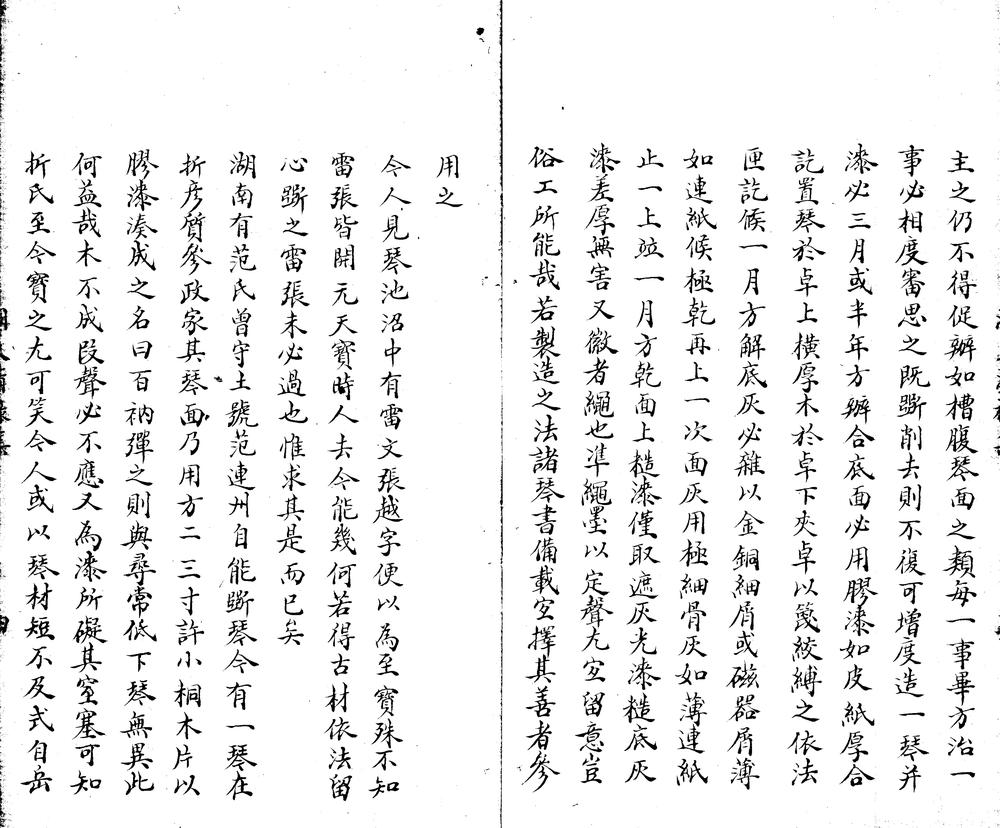 主之仍不得促辦如槽腹琴面之類每一事畢方治一
事必相度審思之既斵削去則不復可增度造一琴并
漆必三月或半年方辦合底面必用膠漆如皮紙厚合
訖置琴於卓上橫厚木於卓下夾卓以篾絞縛之依法
匣訖候一月方解底灰必雜以金銅細屑或磁器屑薄
如連紙候極乾再上一次面灰用極細骨灰如薄連紙
止一上竝一月方乾面上糙漆僅取遮灰光漆糙底灰
漆差厚無害又徽者繩也準繩墨以定聲尤宜留意豈
俗工所能哉若製造之法諸琴書備載宜擇其善者參
用之
今人見琴池沼中有雷文張越字便以為至寶殊不知
雷張皆開元天寶時人去今能幾何若得古材依法留
心斵之雷張未必過也惟求其是而已矣
湖南有范氏曾守土號范連州自能斵琴今有一琴在
折彥質參政家其琴面乃用方二三寸許小桐木片以
膠漆湊成之名曰百衲彈之則與尋常低下琴無異此
何益哉木不成段聲必不應又為漆所礙其窒塞可知
折氏至今寶之尤可笑今人或以琴材短不及式自岳